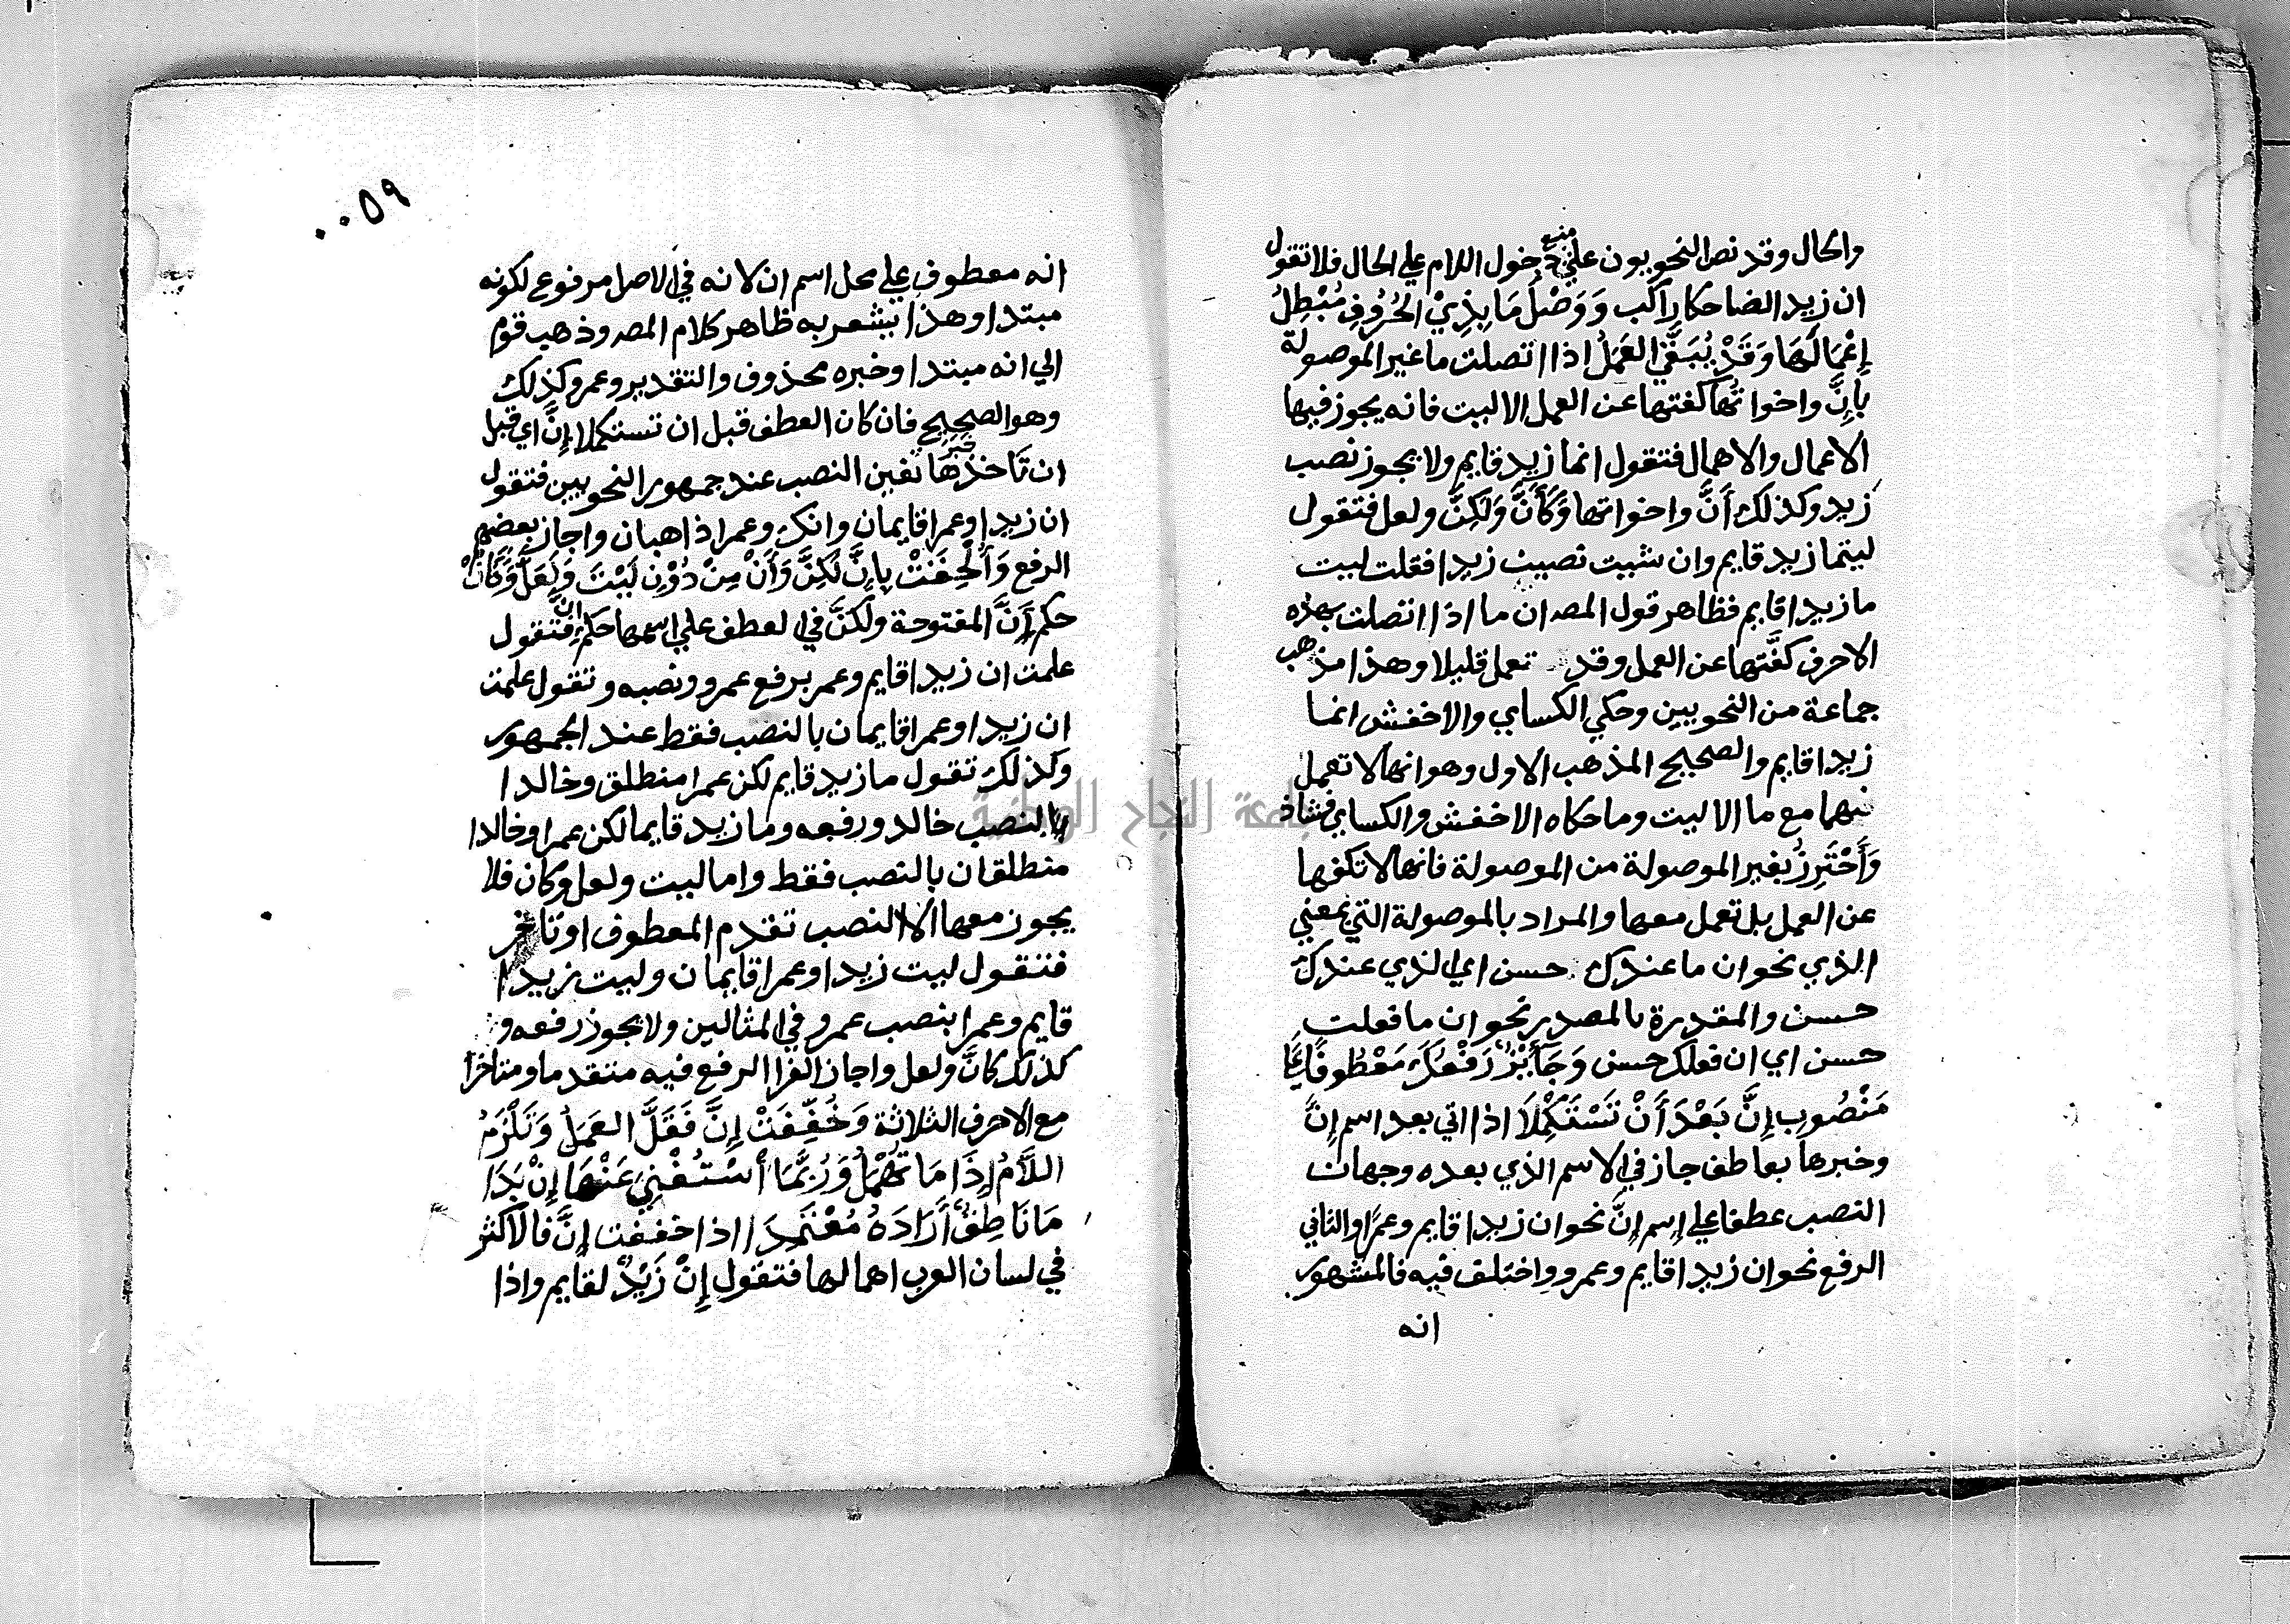 والحال وقد نص النحويون علي منع دخول اللام علي الحال فلا تقول
ان زيد الضاحكا راكب وَوَصْلُ مَا بِذِيْ الحُرُوفِ مُبْطِلُ
إِعْمَالَهَا وَقَدْ يُبَقَّي العَمَلُ اذا اتصلت ما غير الموصولة
بأِنَّ واخواتها كفتها عن العمل الا ليت فانه يجوز فيها
الاعمال والاهمال فتقول انما زيد قايم ولا يجوز نصب
زيد وكذلك أنَّ واخواتها وَكَأَنَّ وَلَكِنَّ ولعل فتقول
ليتما زيد قايم وان شيت نصبت زيدا فقلت ليت
ما زيدا قايم فظاهر قول المصه ان ما اذا اتصلت بهذه
الاحرف كفَّتها عن العمل وقد تعمل قليلا وهذا مذهب
جماعة من النحويين وحكي الكساي والاخفش انما
زيدا قايم والصحيح المذهب الاول وهو انها لا تعمل
منها مع ما الا ليت وما حكاه الاخفش والكساي فشاذ
وَأَحْتَرِزُ بغير الموصولة من الموصولة فانها لا تكفها
عن العمل بل تعمل معها والمراد بالموصولة التي بمعني
الذي نحو ان ما عندك حسن اي الذي عندك
حسن والمقدرة بالمصدر نحو ان ما فعلت
حسن اي ان فعلك حسن وَجَائِزٌ رَفْعُكَ مَعْطُوفًا عَلَي
مَنْصُوبِ إِنَّ بَعْدَ أَنْ تَسْتَكْمِلَا اذا اتي بعد اسم إنَّ
وخبرها بعاطف جاز في الاسم الذي بعده وجهان
النصب عطفا علي إسم إنَّ نحو ان زيدا قايم وعمرًا والثاني
الرفع نحو ان زيدا قايم وعمرو واختلف فيه فالمشهور
انه
٠٠٥٩
انه معطوف علي محل اسم ان لانه في الاصل مرفوع لكونه
مبتدا وهذا يشعر به ظاهر كلام المصه وذهب قوم
الي انه مبتدا وخبره محذوف والتقدير وعمرو كذلك
وهو الصحيح فان كان العطف قبل ان تستكمل إنَّ اي قبل
ان تأخذ خبرها تعين النصب عند جمهور النحويين فتقول
ان زيدا وعمرا قايمان وانك وعمرا ذاهبان واجاز بعضهم
الرفع وَأُلْحِقَتْ بِإِنَّ لَكِنَّ وَأَنْ مِنْ دُوْنِ لَيْتَ وَلَعَلَّ وَكَأَنّْ
حكم أنَّ المفتوحة ولكنَّ في العطف علي اسمها حكم إنَّ فتقول
علمت ان زيدا قايم وعمر برفع عمرو ونصبه وتقول علمت
ان زيدا وعمرا قايمان بالنصب فقط عند الجمهور
وكذلك تقول ما زيد قايم لكن عمرا منطلق وخالدا
بالنصب خالد ورفعه وما زيد قايما لكن عمرا وخالدا
منطلقان بالنصب فقط واما ليت ولعل وكان فلا
يجوز معها الا النصب تقدم المعطوف او تأخر
فتقول ليت زيدا وعمرا قايمان وليت زيدا
قايم وعمرا بنصب عمرو في المثالين ولا يجوز رفعه و
كذلك كانَّ ولعل واجاز الفرا الرفع فيه متقدما ومتاخرا
مع الاحرف الثلاثة وَخُفِّفَتْ إِنَّ فَقَلَّ العَمَلُ وَتَلْزَمُ
اللَّامُ إِذَا مَا تُهْمَلُ وَرُبَّمَا أسْتُغْنِي عَنْهَا إِنْ بَدَا
مَا نَاطِقٌ أَرَادَهُ مُعْتَمِدَا اذا خففت إنَّ فالاكثر
في لسان العرب اهمالها فتقول إِنْ زَيْدٌ لقايم واذا
جامعة النجاح الوطنية